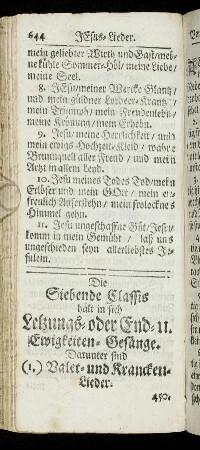 644 JEsus-Lieder.
mein geliebter Wirth und Gast/mei-
ne kühle Sommer-Höl/meine Liebe/
meine Seel.
8. JEsu/meiner Wercke Glantz/
und mein güldner Lorbeer-Krantz/
mein Triumph/mein Freudenlebn/
meine Krönung/mein Erhebn.
9. Jesu/meine Herrlichkeit/und
mein ewigs Hochzeit-Kleid/wahre
Brunnquell aller Freud/und mein
Artzt in allem Leyd.
10. Jesu meines Todes Tod/mein
Erlöser und mein GOtt/mein er-
freulich Auferstehn/mein frolocknes
Himmel gehn.
11. Jesu ungeschaffne Güt/Jesu
komm in mein Gemüht/laß uns
ungeschieden seyn allerliebstes Je-
sulein.
Die
Siebende Classis
hält in sich
Letzungs- oder End- u.
Ewigkeiten-Gesänge.
Darunter sind
(1.) Valet- und Krancken-
Lieder.
450.